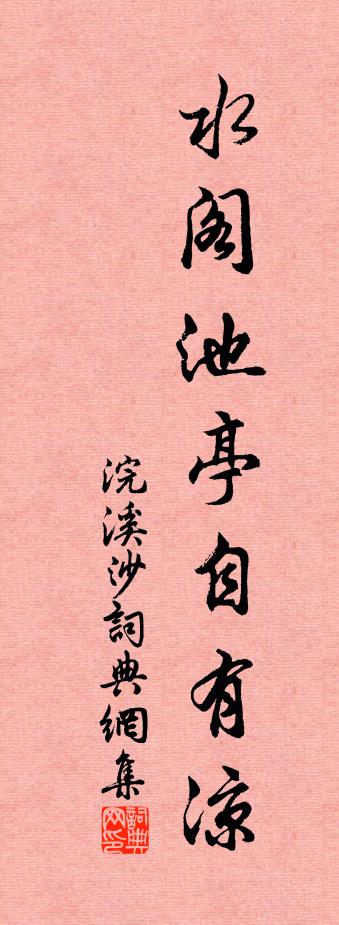 水阁池亭自有凉
浣溪沙詞典網集
詞典网印